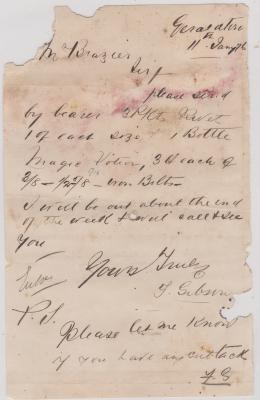 11th Jany 76
Mr Brazier
Sir
please send
by bearer 3 Pkts Rivets
1 of each size 1 Bottle
Magic Lotion, 3 lb each of
3/8 Iron Bolts
I will be out about the end
of the week & will call & see
you
Yours Truly
J. Gibson
P.S.
Please let me know
if you have any cut tack
J.G